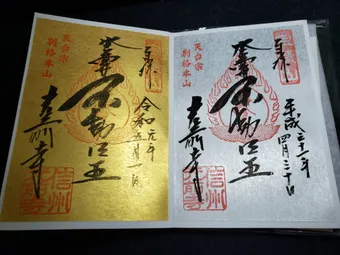 奉拝
平成三十一年
四月三十日
本尊不動明王
天台宗
別格本山
光前寺
信州
奉拝
令和元年
五月一日
本尊不動明王
天台宗
別格本山
光前寺
信州